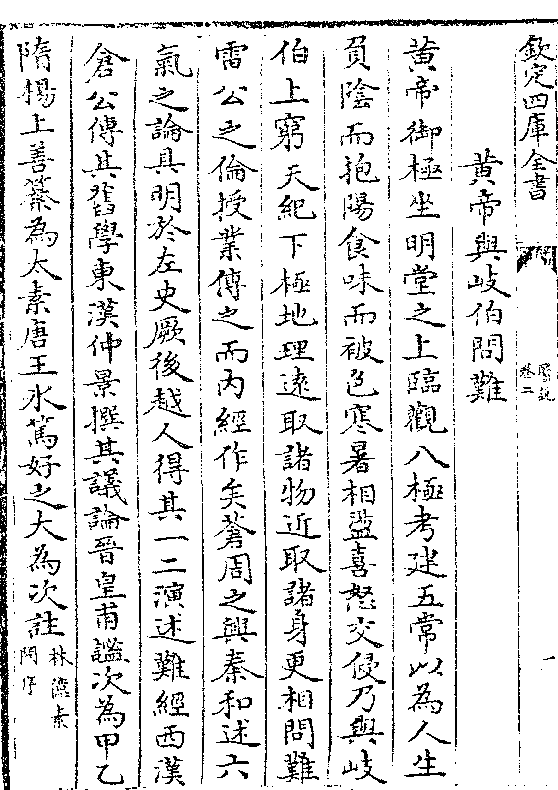 欽定四庫全書
醫說
卷二
一
黄帝與岐伯問難
黄帝御極坐明堂之上臨觀八極考建五常以為人生
負陰而抱陽食味而被色寒暑相盪喜怒交侵乃與岐
伯上窮天紀下極地理逺取諸物近取諸身更相問難
雷公之倫授業傳之而内經作矣蒼周之興秦和述六
氣之論具明於左史厥後越人得其一二演述難經西漢
倉公傳其舊學東漢仲景撰其議論晉皇甫謐次為甲乙
隋楊上善纂為太素唐王氷篤好之大為次註林億素
問序